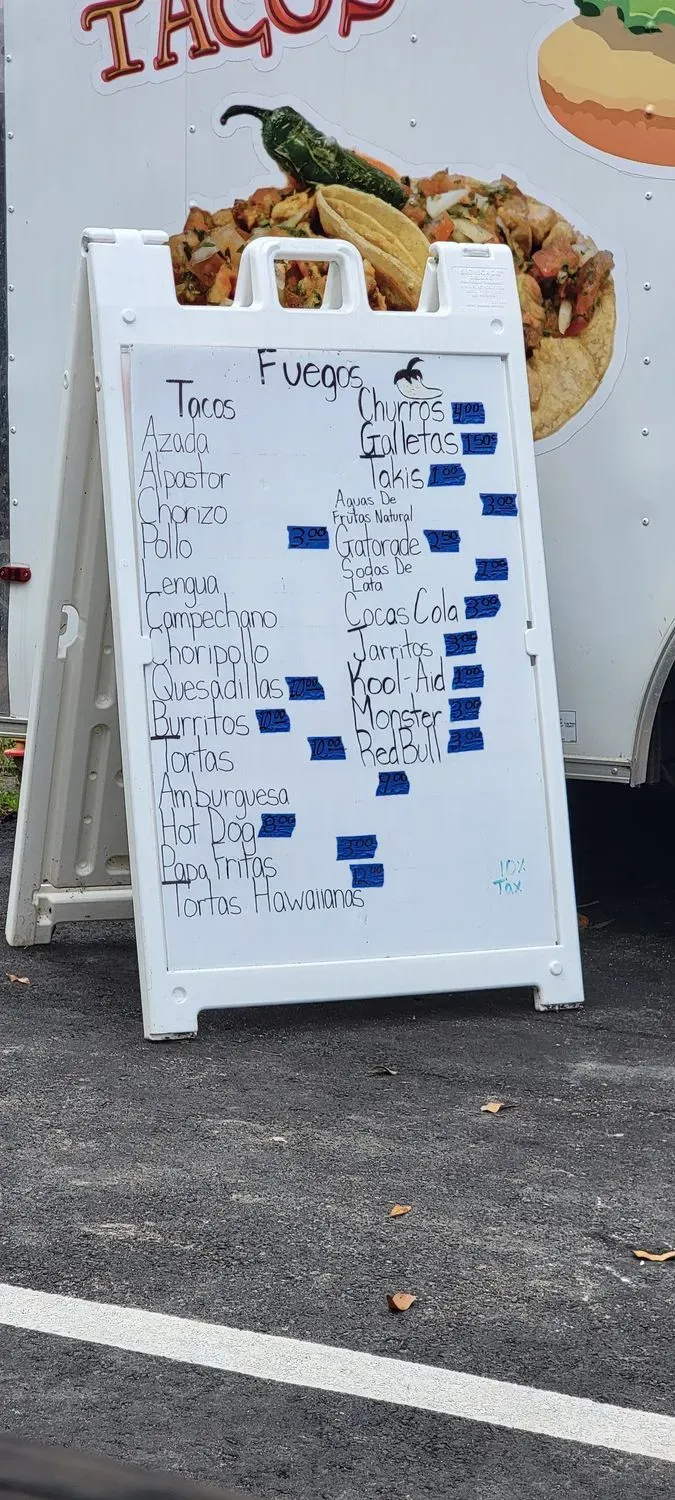 TACOS
Fuegos
Tacos
Azada
Alpastor
Chorizo
Pollo 3.00
Lengua
Campechano
Choripollo
Quesadillas 10.00
Burritos 10.00
Tortas 10.00
Amburguesa 9.00
Hot Dog 8.00
Papa Fritas 3.00
Tortas Hawaiianas
Churros 4.00
Galletas 1.50¢
Takis 1.00
Aguas De 3.00
Frutas Natural
Gatorade 2.50
Sodas De
Lata
Cocas Cola 3.00
Jarritos 3.00
Kool-Aid 1.00
Monster 3.00
RedBull 3.00
10%
Tax